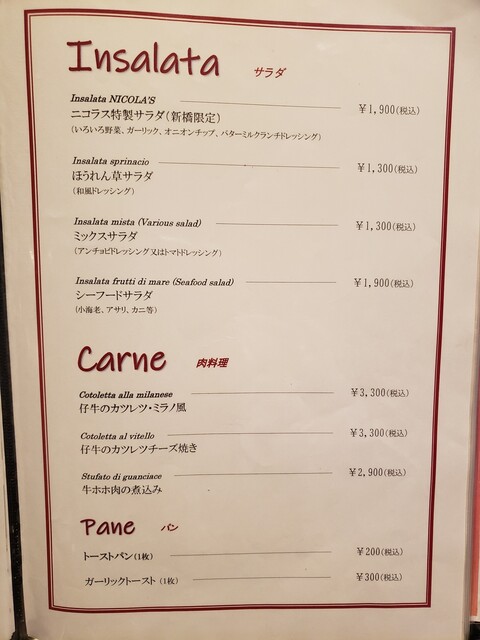 Insalata サラダ
Insalata NICOLA'S ¥1,900(税込)
ニコラス特製サラダ(新橋限定)
(いろいろ野菜、ガーリック、オニオンチップ、バターミルクランチドレッシング)
Insalata sprinacio ¥1,300(税込)
ほうれん草サラダ
(和風ドレッシング)
Insalata mista (Various salad) ¥1,300(税込)
ミックスサラダ
(アンチョビドレッシング又はトマトドレッシング)
Insalata frutti di mare (Seafood salad) ¥1,900(税込)
シーフードサラダ
(小海老、アサリ、カニ等)
Carne 肉料理
Cotoletta alla milanese ¥3,300(税込)
仔牛のカツレツ・ミラノ風
Cotoletta al vitello ¥3,300(税込)
仔牛のカツレツチーズ焼き
Stufato di guanciace ¥2,900(税込)
牛ホホ肉の煮込み
Pane パン
トーストパン(1枚) ¥200(税込)
ガーリックトースト(1枚) ¥300(税込)